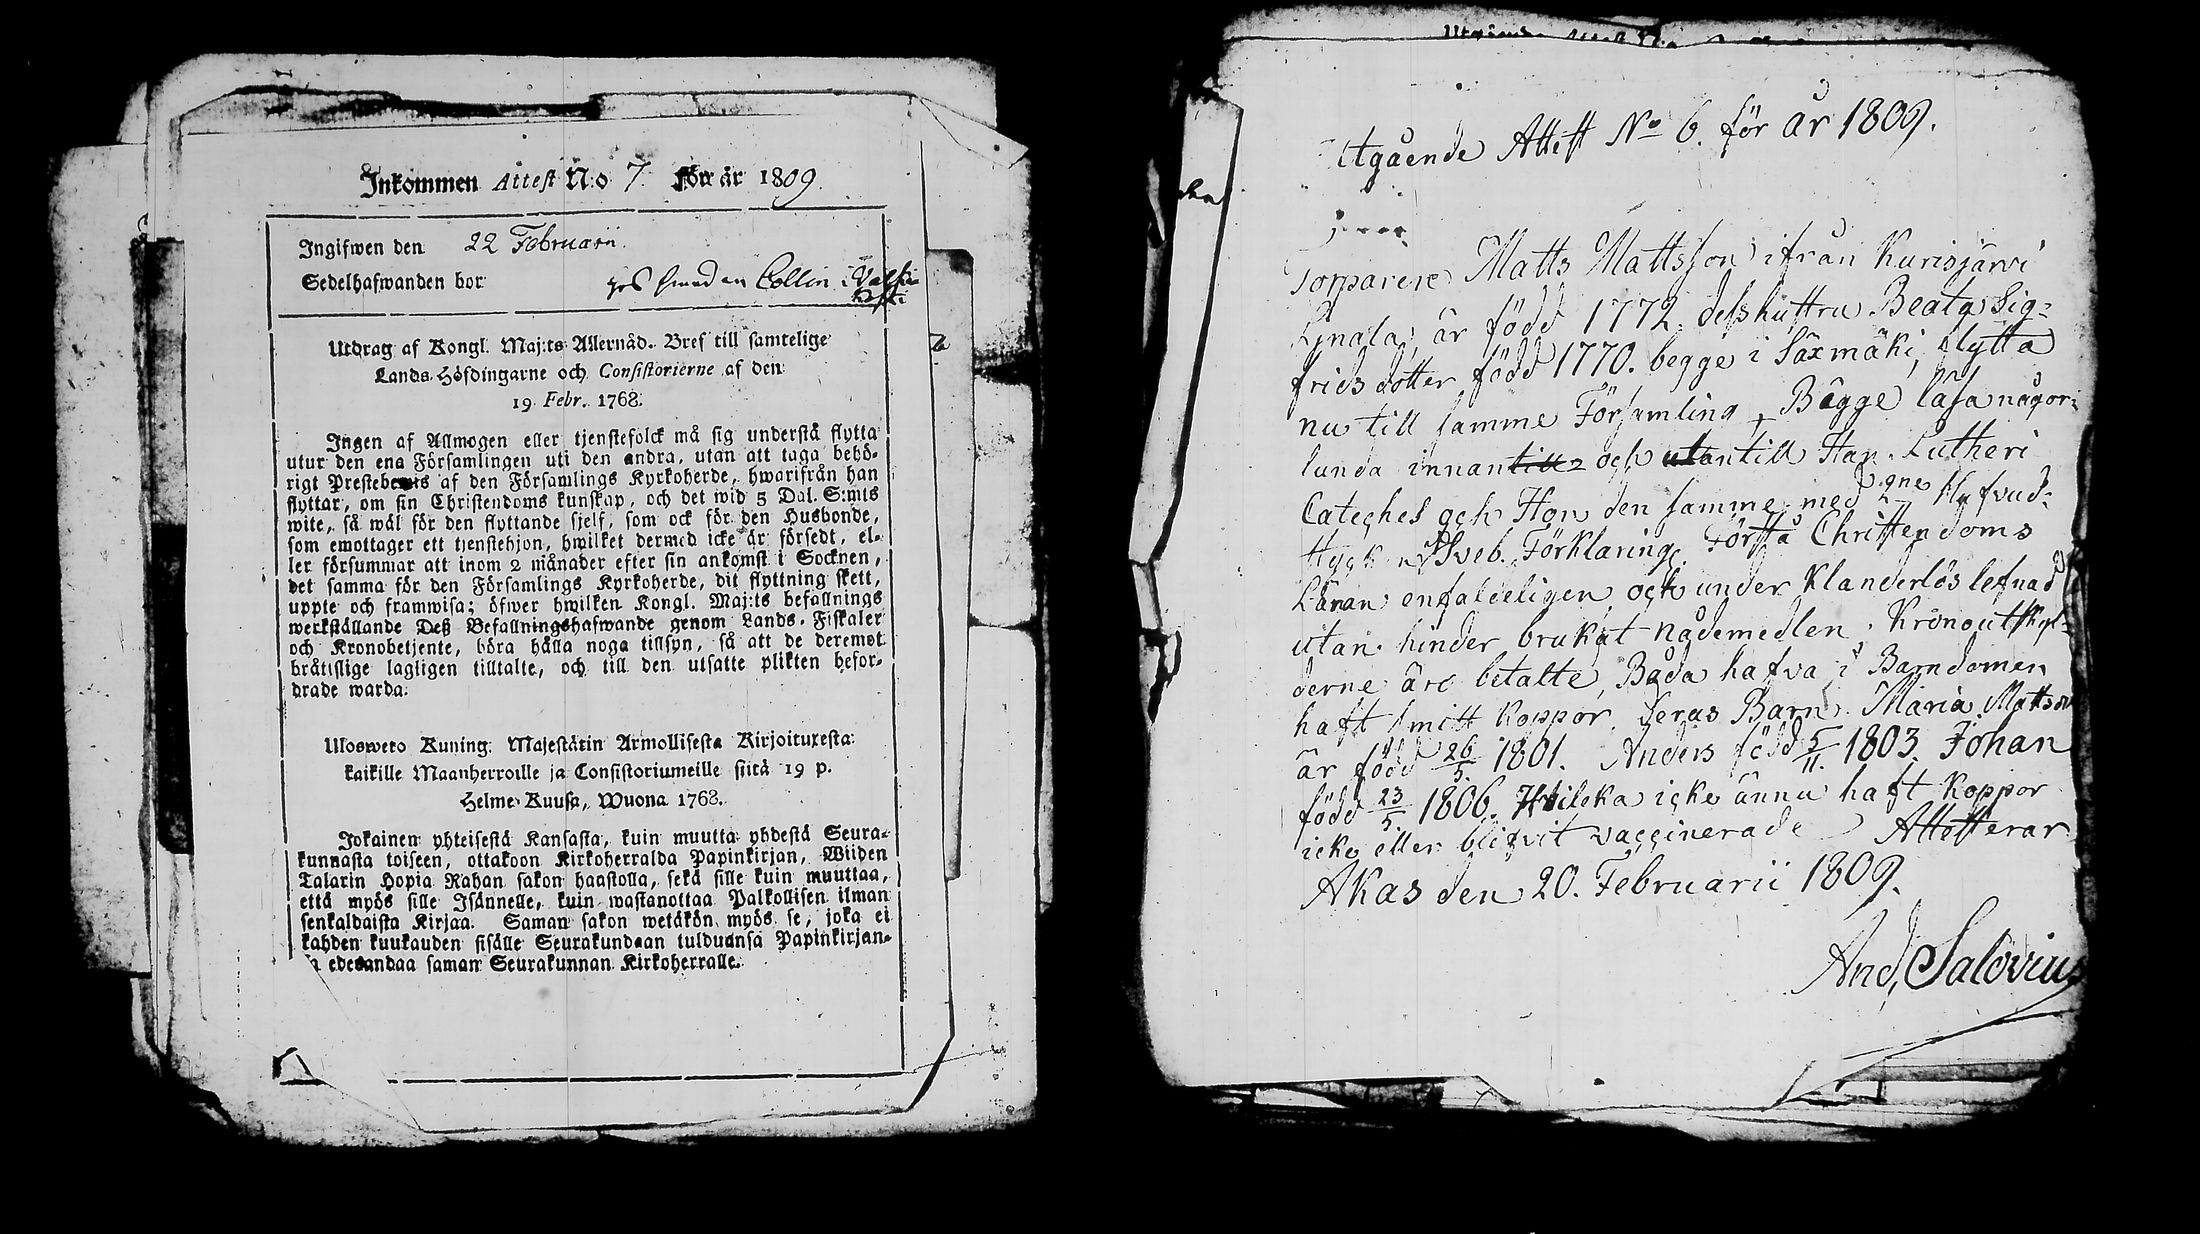 Inkommen Attest N:o 7. för år 1809.
Ingifwen den 22 Februarii.
Sedelhafwanden bor hos Smeden Collin i
Utdrag af Kongl. Maj:ts Allernåd. Bref till samtelige
Lands-Höfdingarne och Consistorierne af den
19 Febr. 1768.
Ingen af Allmogen eller tjenstefolck må sig understå flytta
utur den ena Församlingen uti den andra, utan att taga behö-
rigt Prestebewis af den Församlings Kyrkoherde, hwarifrån han
flyttar, om sin Christendoms kunskap, och det wid 5 Dal. S:mts
wite, så wäl för den flyttande sjelf, som ock för den Husbonde,
som emottager ett tjenstehjon, hwilket dermed icke är försedt, el-
ler försummar att inom 2 månader efter sin ankomst i Socknen,
det samma för den Församlings Kyrkoherde, dit flyttning skett,
uppte och framwisa; öfwer hwilken Kongl. Maj:ts befallnings
werkställande Deß Befallningshafwande genom Lands-Fiskaler
och Kronobetjente, böra hålla noga tillsyn, så att de deremot
bråtislige lagligen tilltalte, och till den utsatte plikten befor-
drade warda.
Ulosweto Kuning. Majestätin Armollisesta Kirjoituxesta
kaikille Maanherroille ja Consistoriumeille siitä 19 p.
Helme-Kuusa, Wuona 1768.
Jokainen yhteisestä Kansasta, kuin muutta yhdestä Seura-
kunnasta toiseen, ottakoon Kirkoherralda Papinkirjan, Wiiden
Talarin Hopia Rahan sakon haastolla, sekä sille kuin muuttaa,
että myös sille Isännelle, kuin wastanottaa Palkollisen ilman
senkaldaista Kirjaa. Saman sakon wetäkön myös se, joka ei
kahden kuukauden sisälle Seurakundaan tulduansa Papinkirjan-
sa edesandaa saman Seurakunnan Kirkoherralle.
Utgående Attest No 6. för år 1809.
Torparen Matts Mattsson ifrån Kurisjärvi
är född 1772, desshustru Beata Sig-
frids dotter född 1770. begge i Säxmäki, flytta
nu till samme Församling, Bägge läsa någor-
lunda innantill och utantill Han Lutheri
Cateches och Hon den samme med 2ne Hufvud-
stycken Sveb. Förklaring. Förstå Christendoms
Läran enfaldeligen och under klanderlös lefnad
utan hinder brukat nådemedlen. Kronoutskyl-
derne äro betalte, Båda hafva i Barndomen
haft smitt koppor. Deras Barn Maria Mattsdr
är född 26/5 1801. Anders född 5/11 1803. Johan
född 23/5 1806. Hvilcka icke ännu haft koppor
icke eller blifvit vaccinerade Attesterar
Akas den 20. Februarii 1809.
And. Salovius